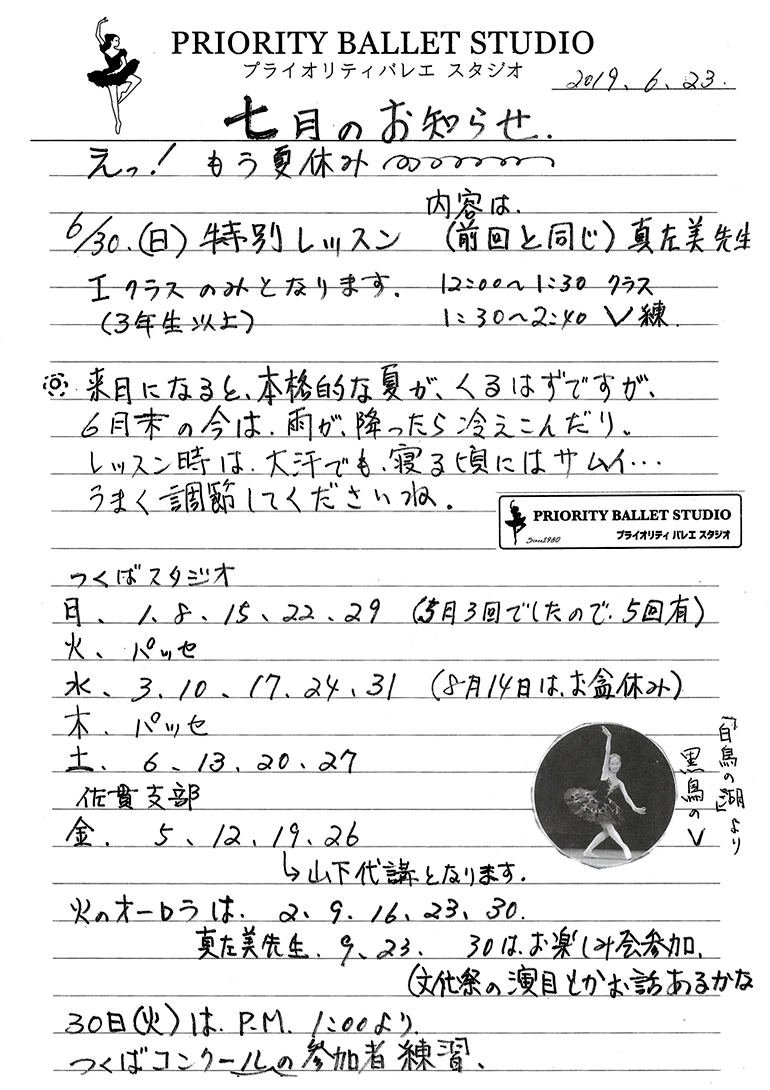 PRIORITY BALLET STUDIO
プライオリティバレエ スタジオ
2019、6、23.
七月のお知らせ.
えっ! もう夏休み
内容は.
6/30.(日) 特別レッスン (前回と同じ) 真左美先生
Iクラスのみとなります. 12:00〜1:30 クラス
(3年生以上) 1:30〜2:40 V練.
来月になると、本格的な夏が、くるはずですが、
6月末の今は、雨が、降ったら冷えこんだり。
レッスン時は、大汗でも、寝る頃にはサムイ…
うまく調節してくださいね.
PRIORITY BALLET STUDIO
Since1980
プライオリティ バレエ スタジオ
つくばスタジオ
日、 1、8、15、22、29 (5月3回でしたので、5回有)
火、 パッセ
水、 3、10、17、24、31 (8月14日は、お盆休み)
木. パッセ
土、 6、13、20、27
佐貫支部
金. 5、12、19、26
↳山下代講となります.
『白鳥の湖』より
黒鳥のV
火のオーロラは. 2、9、16、23、30.
真左美先生. 9、23. 30は、お楽しみ会参加.
(文化祭の演目とかお話あるかな
30日(火)は. P.M. 1:00より.
つくばコンクールの参加者練習.